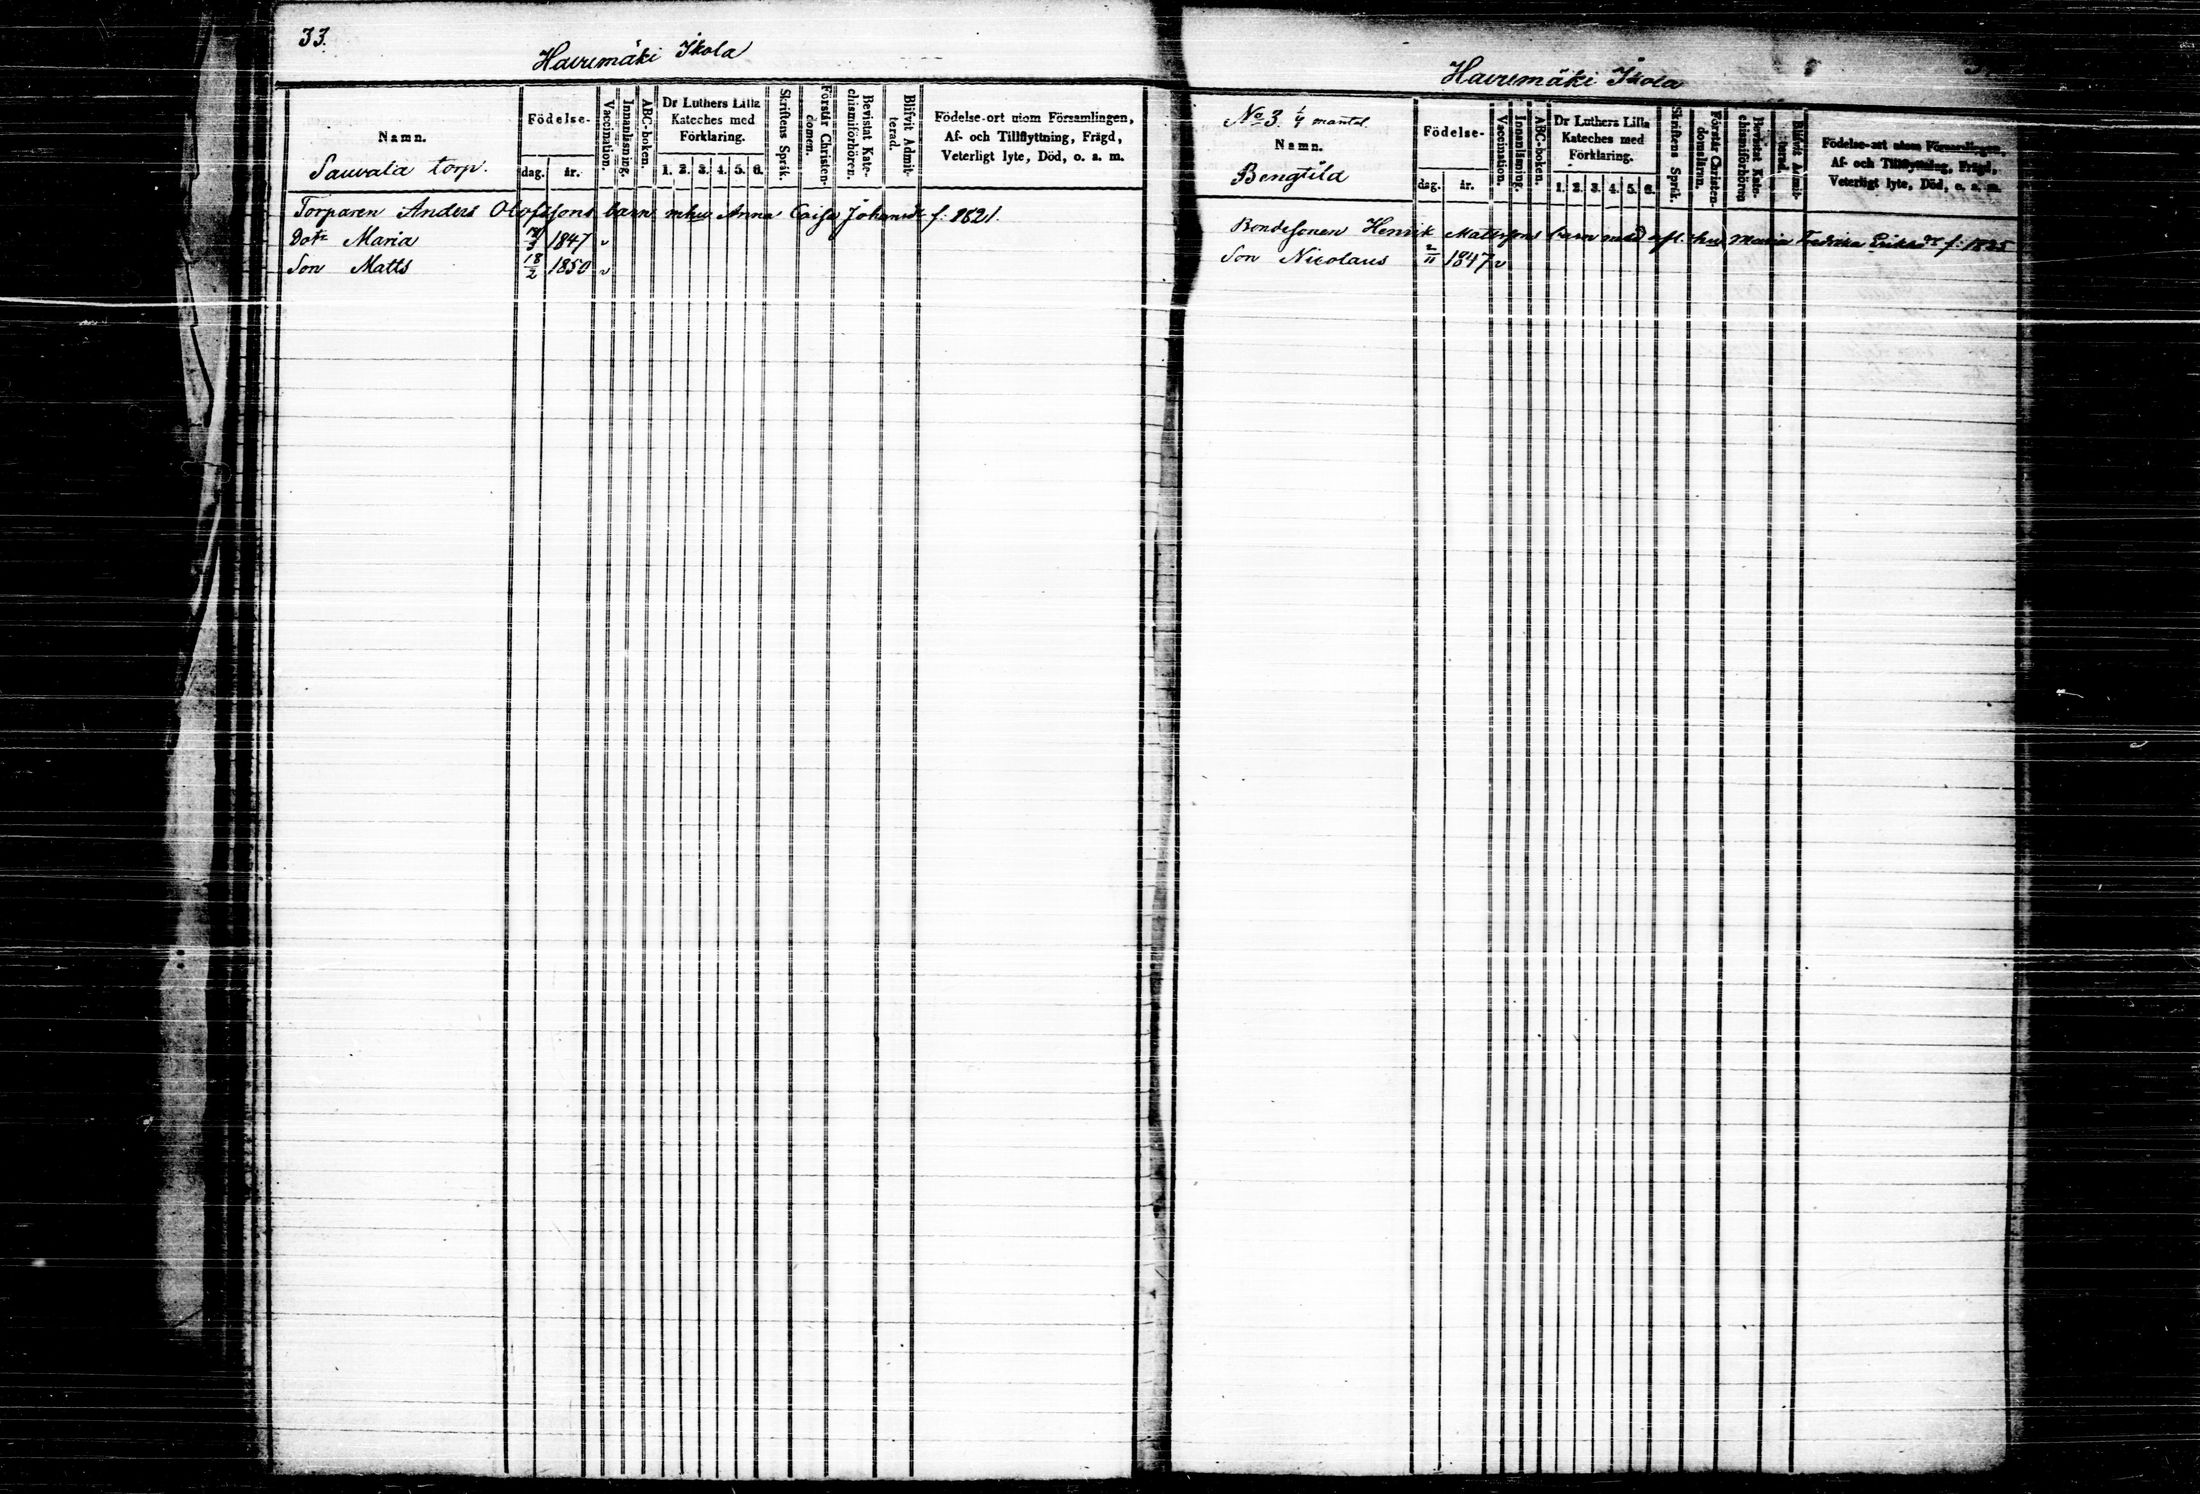 33.
Havumäki Ikola
Namn.
Sauvala torp.
Födelse-
dag. år.
Vaccination.
Innanläsning.
ABC-boken.
Dr Luthers Lilla
Kateches med
Förklaring.
1. 2. 3. 4. 5. 6.
Skriftens Språk.
Förstår Christen-
domen.
Bevistat Kate-
chismiförhören.
Blifvit Admit-
terad.
Födelse-ort utom Församlingen,
Af- och Tillflyttning, Frägd,
Veterligt lyte, Död, o. s. m.
Torparen Anders Olofssons barn m hu Anna Caisa Johansdr f. 1821.
Dotr Maria 1847 v
Son Matts 18/2 1850 v
Havumäki Ikola
No 3. 1/4 mantal.
Namn.
Bengtild
Födelse-
dag. år.
Vaccination.
Innanläsning.
ABC-boken.
Dr Luthers Lilla
Kateches med
Förklaring.
1. 2. 3. 4. 5. 6.
Skriftens Språk.
Förstår Christen-
domsläran.
Bevistat Kate-
chismiförhören
Blifvit Admit-
terad.
Födelse-ort utom Församlingen,
Af- och Tillflyttning, Frägd,
Veterligt lyte, Död, o. s. m.
Bondesonen Henrik Mattssons barn med afl. hu Maria Fredrika Eriksdr f. 1825
Son Nicolaus 2/11 1847 v